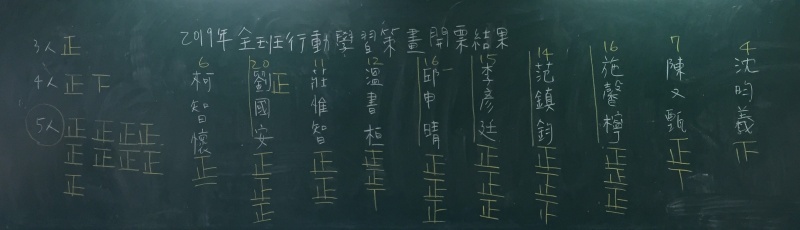 2019年全班行動學習策畫開票結果
3人 正
4人 正 下
5人 正 正 正 正
正 正 正 正
正
6 柯智懷 正 一
20 劉國安 正 正 正 正
11 莊惟智 正 正 一
12 溫書桓 正 正 丅
16 邱申晴 正 正 正 一
15 李彥廷 正 正 正
14 范鎮鈞 正 正
16 施馨檸 正 正 正 一
7 陳文甄 正 丅
4 沈昀義